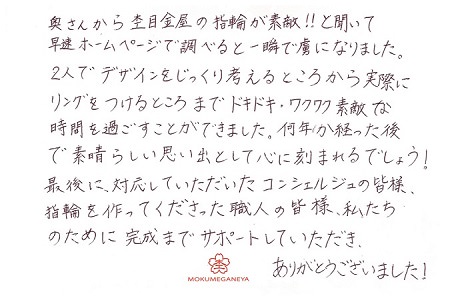 奥さんから杢目金屋の指輪が素敵!!と聞いて
早速ホームページで調べると一瞬で虜になりました。
2人でデザインをじっくり考えるところから実際に
リングをつけるところまでドキドキ・ワクワク素敵な
時間を過ごすことができました。何年か経った後
で素晴らしい思い出として心に刻まれるでしょう!
最後に、対応していただいたコンシェルジュの皆様、
指輪を作ってくださった職人の皆様、私たち
のために完成までサポートしていただき、
ありがとうございました!
MOKUMEGANEYA